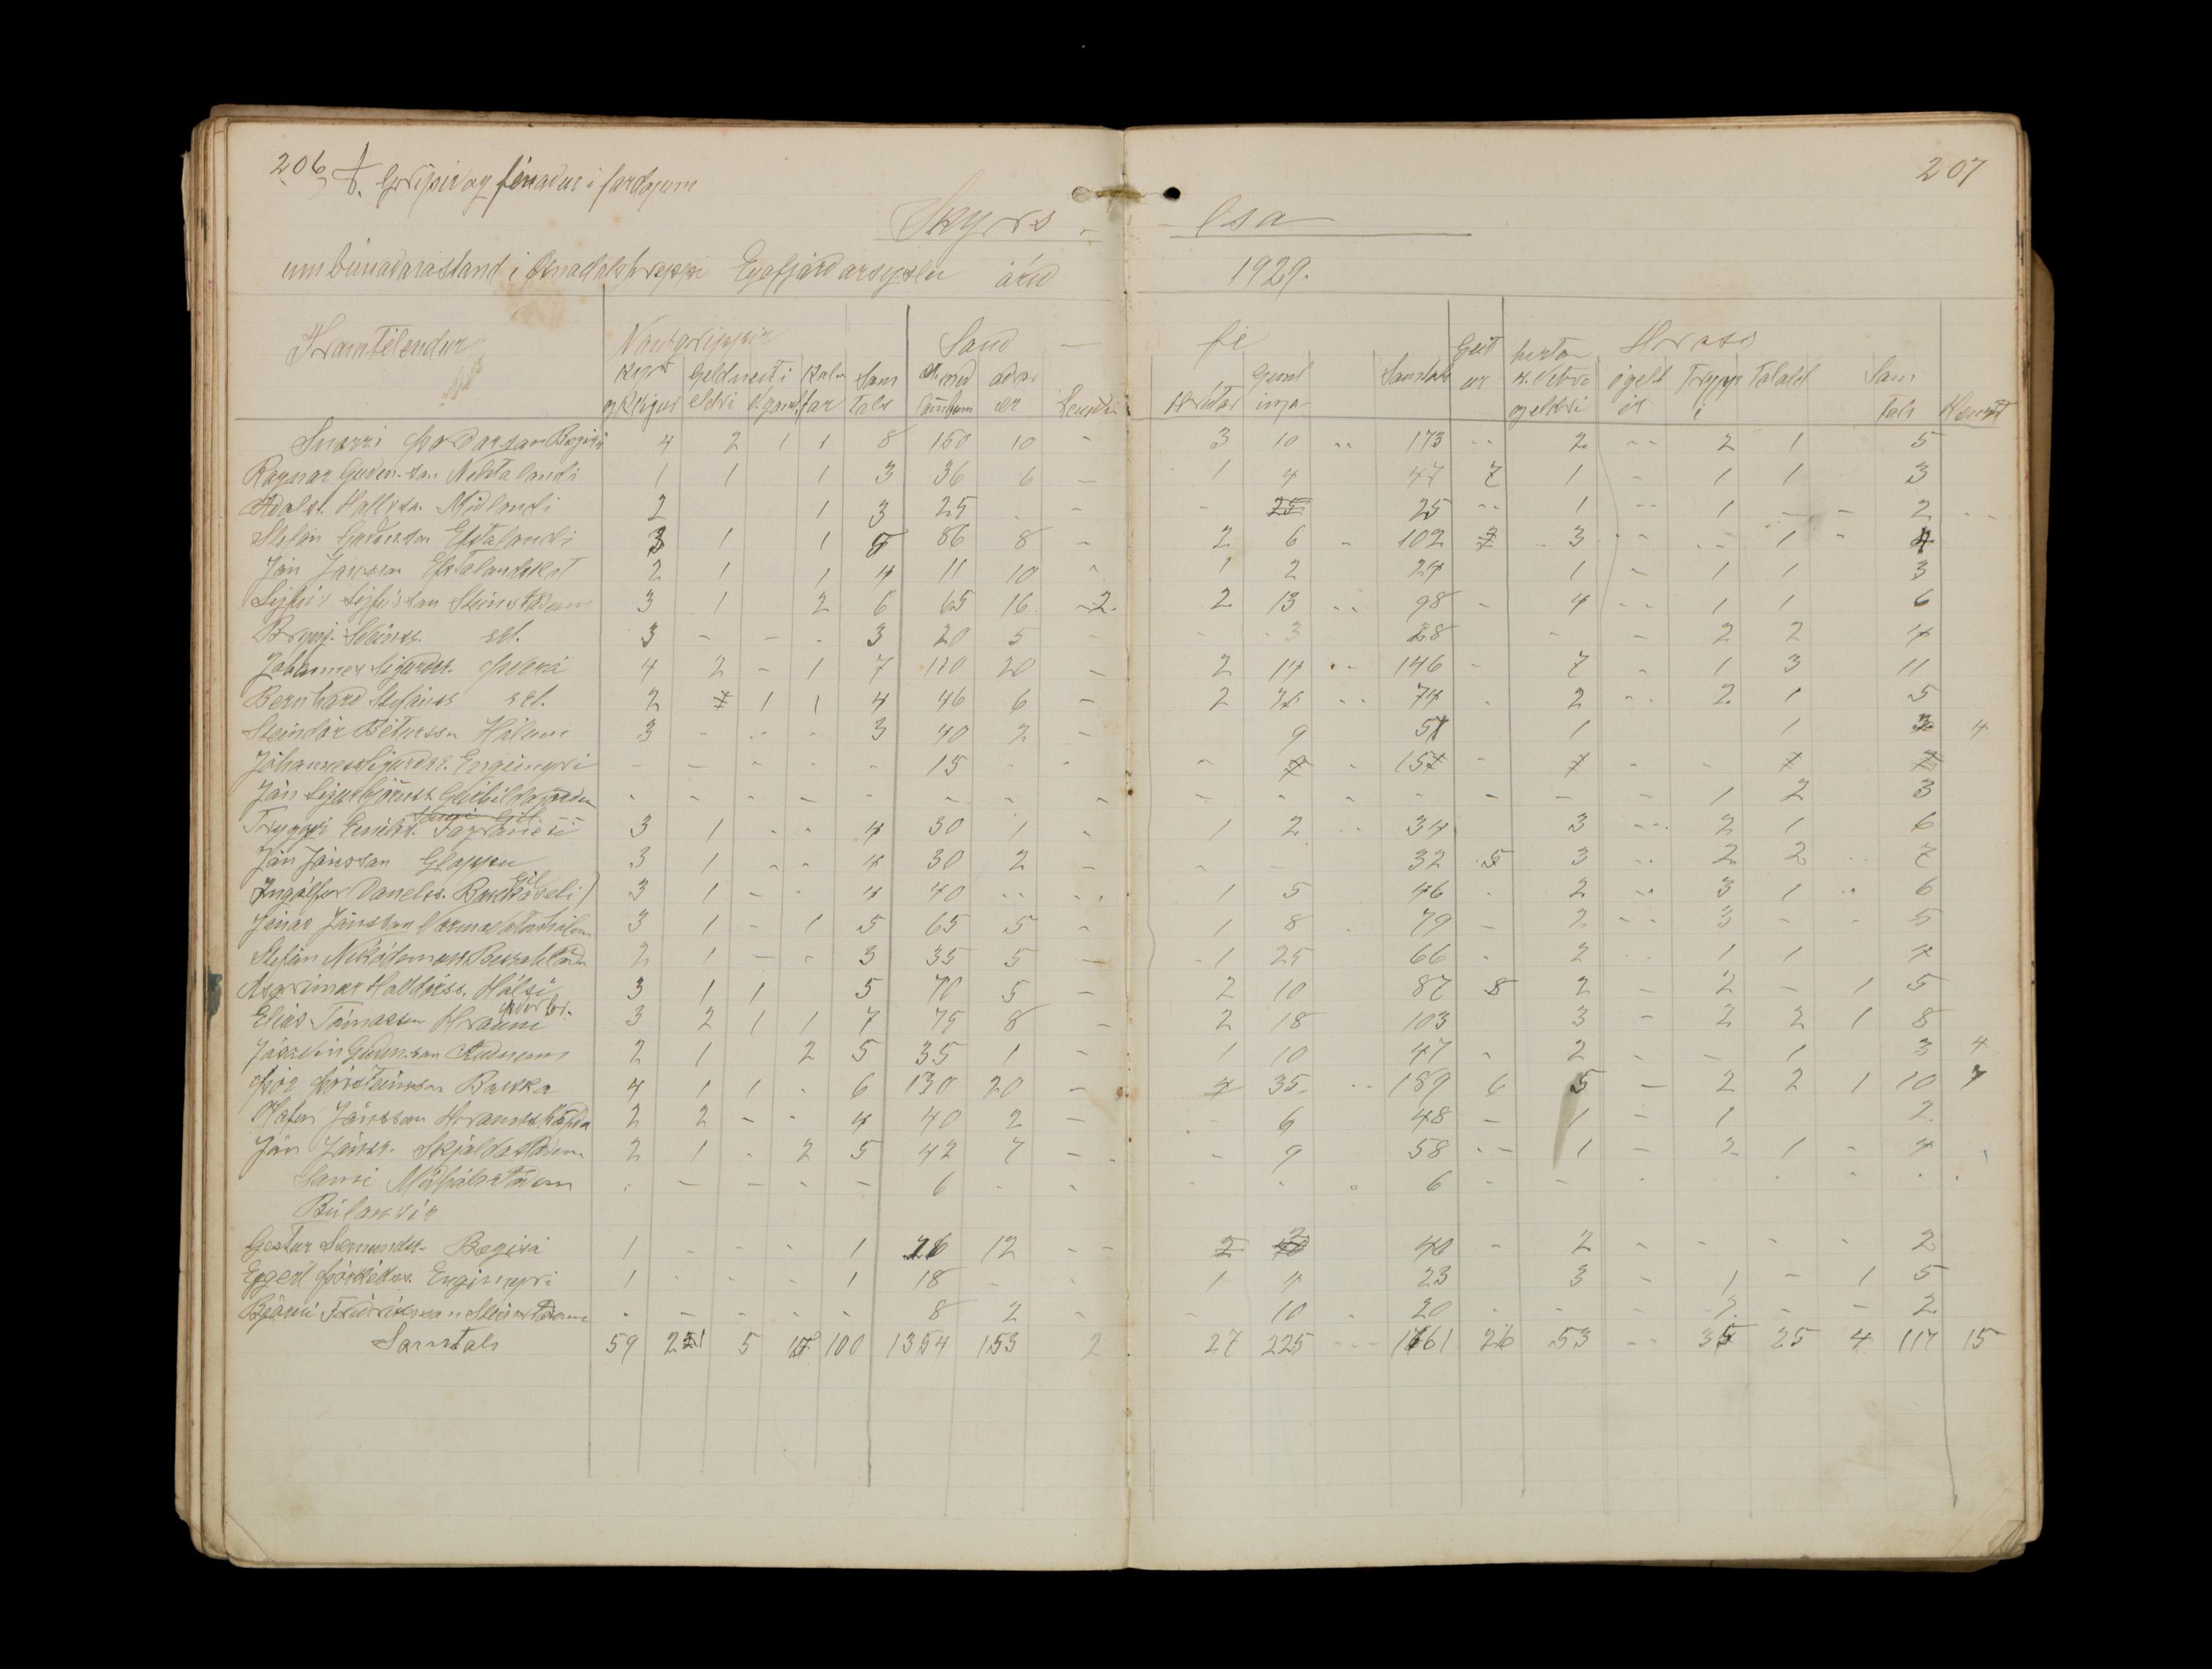 206
207
A. Gripir og fénaður í fardögum
Skyrs - lsa
um búnaðarástand í Öxnadalshreppi Eyjafjarðarsyslu árið 1929.
Framteljendur Nautgrippir Sauð - fé Geit Hross
kyr geldneiti kalv Sam ær með aðrar Geml Samtals ur hestar
og kvígur eldri v.gaml far tals lömbum ær Sauðir Hrútar inga 4. vetra og eldri Trypp i Folald Sam tals Hænsn
Snorri Þorðarson Bægisá 4 2 1 1 8 150 10 - 3 10 -- 173 -- 2 -- 2 1 5
Ragnar Guðm.son Neðstalandi 1 1 1 3 36 6 - 1 4 47 7 1 - 1 1 3
Aðalst. Hallssn. Miðlandi 2 1 3 25 - - - 25 25 -- 1 -- 1 - - 2 --
Stefán Efstalandi 3 1 1 5 86 8 - 2 6 - 102 7 3 -- -- 1 - 4
Jón Jónsson Efstalandskot 2 1 1 4 11 10 - 1 2 24 1 - 1 1 3
Sigfús Sigfússon Steinsstöðum 3 1 2 6 65 16 -2. 2 13 -- 98 - 4 -- 1 1 6
Brynj. Sveinss. sst. 3 - - - 3 20 5 - - 3 28 - - 2 2 4
Johannes Sigurðss. Þverá 4 2 - 1 7 110 20 - 2 14 -- 146 - 7 - 1 3 11
Bernharð Stefánss sst. 2 7 1 1 4 46 6 - 2 -- 74 - 2 -- 2 1 5
Steindór Péturssn Hólum 3 - -- - 3 40 2 - 9 51 1 1 3 4
Jóhannes Sigurðss. Engimyri - - - - - 15 - - - 7 - 157 - 7 - - 7 7
Jón Sigurbjörnss. Geirhildagarðm - - - - - - - - - - - - - - - 1 2 3
Tryggvi Emilss. Fagranesi 3 1 - - 4 30 1 - 1 2 -- 34 3 --- 2 1 6
Jón Jónsson Gloppu 3 1 - - 4 30 2 - - - 32 5 3 -- 2 2 -- 7
Ingólfur Daníelss. Bakkaseli 3 1 - - 4 40 -- -- 1 5 46 - 2 -- 3 1 -- 6
Jónas Jónsson Varmavatnshólum 3 1 - 1 5 65 5 - 1 8 - 79 - 2 -- 3 - - 5
Stefán Nikódemuss Bessahlöðu 2 1 - - 3 35 5 - 1 25 66 - 2 1 1 4
Asgrímur Halldórss. Hálsi 3 1 1 5 70 5 - 2 10 87 8 2 - 2 - 1 5
Elias Tómasson Hrauni 3 2 1 1 7 75 8 - 2 18 103 3 - 2 2 1 8
Jósavin Guðm.son Auðnum 2 1 2 5 35 1 - 1 10 47 - 2 - - 1 3 4
Þór Þórsteinsson Bakka 4 1 1 - 6 130 20 - 4 35 -- 189 6 5 - 2 2 1 10 7
Jónsson Hraunshöfða 2 2 - - 4 40 2 - - 6 48 - 1 - 1 2
Jón Jónss. Skjaldastöðum 2 1 - 2 5 42 7 - - 9 58 -- 1 - 2 1 - 4
Sami - - - - - 6 - - - - - 6 - - - - - -
Búlausir
Gestur Sæmundss. Bægisá 1 - - - 1 26 12 -- 2 40 - 2 - - - - 2
Eggert Engimyri 1 - - - 1 18 - - 1 4 23 3 - 1 - 1 5
Bjarni Friðrikssoan Steinstöðum - - - - - 8 2 - - 10 - 20 - - - 2 - - 2
Samtals 59 5 100 1354 153 2 27 225 --- 1761 26 53 -- 35 25 4 117 15